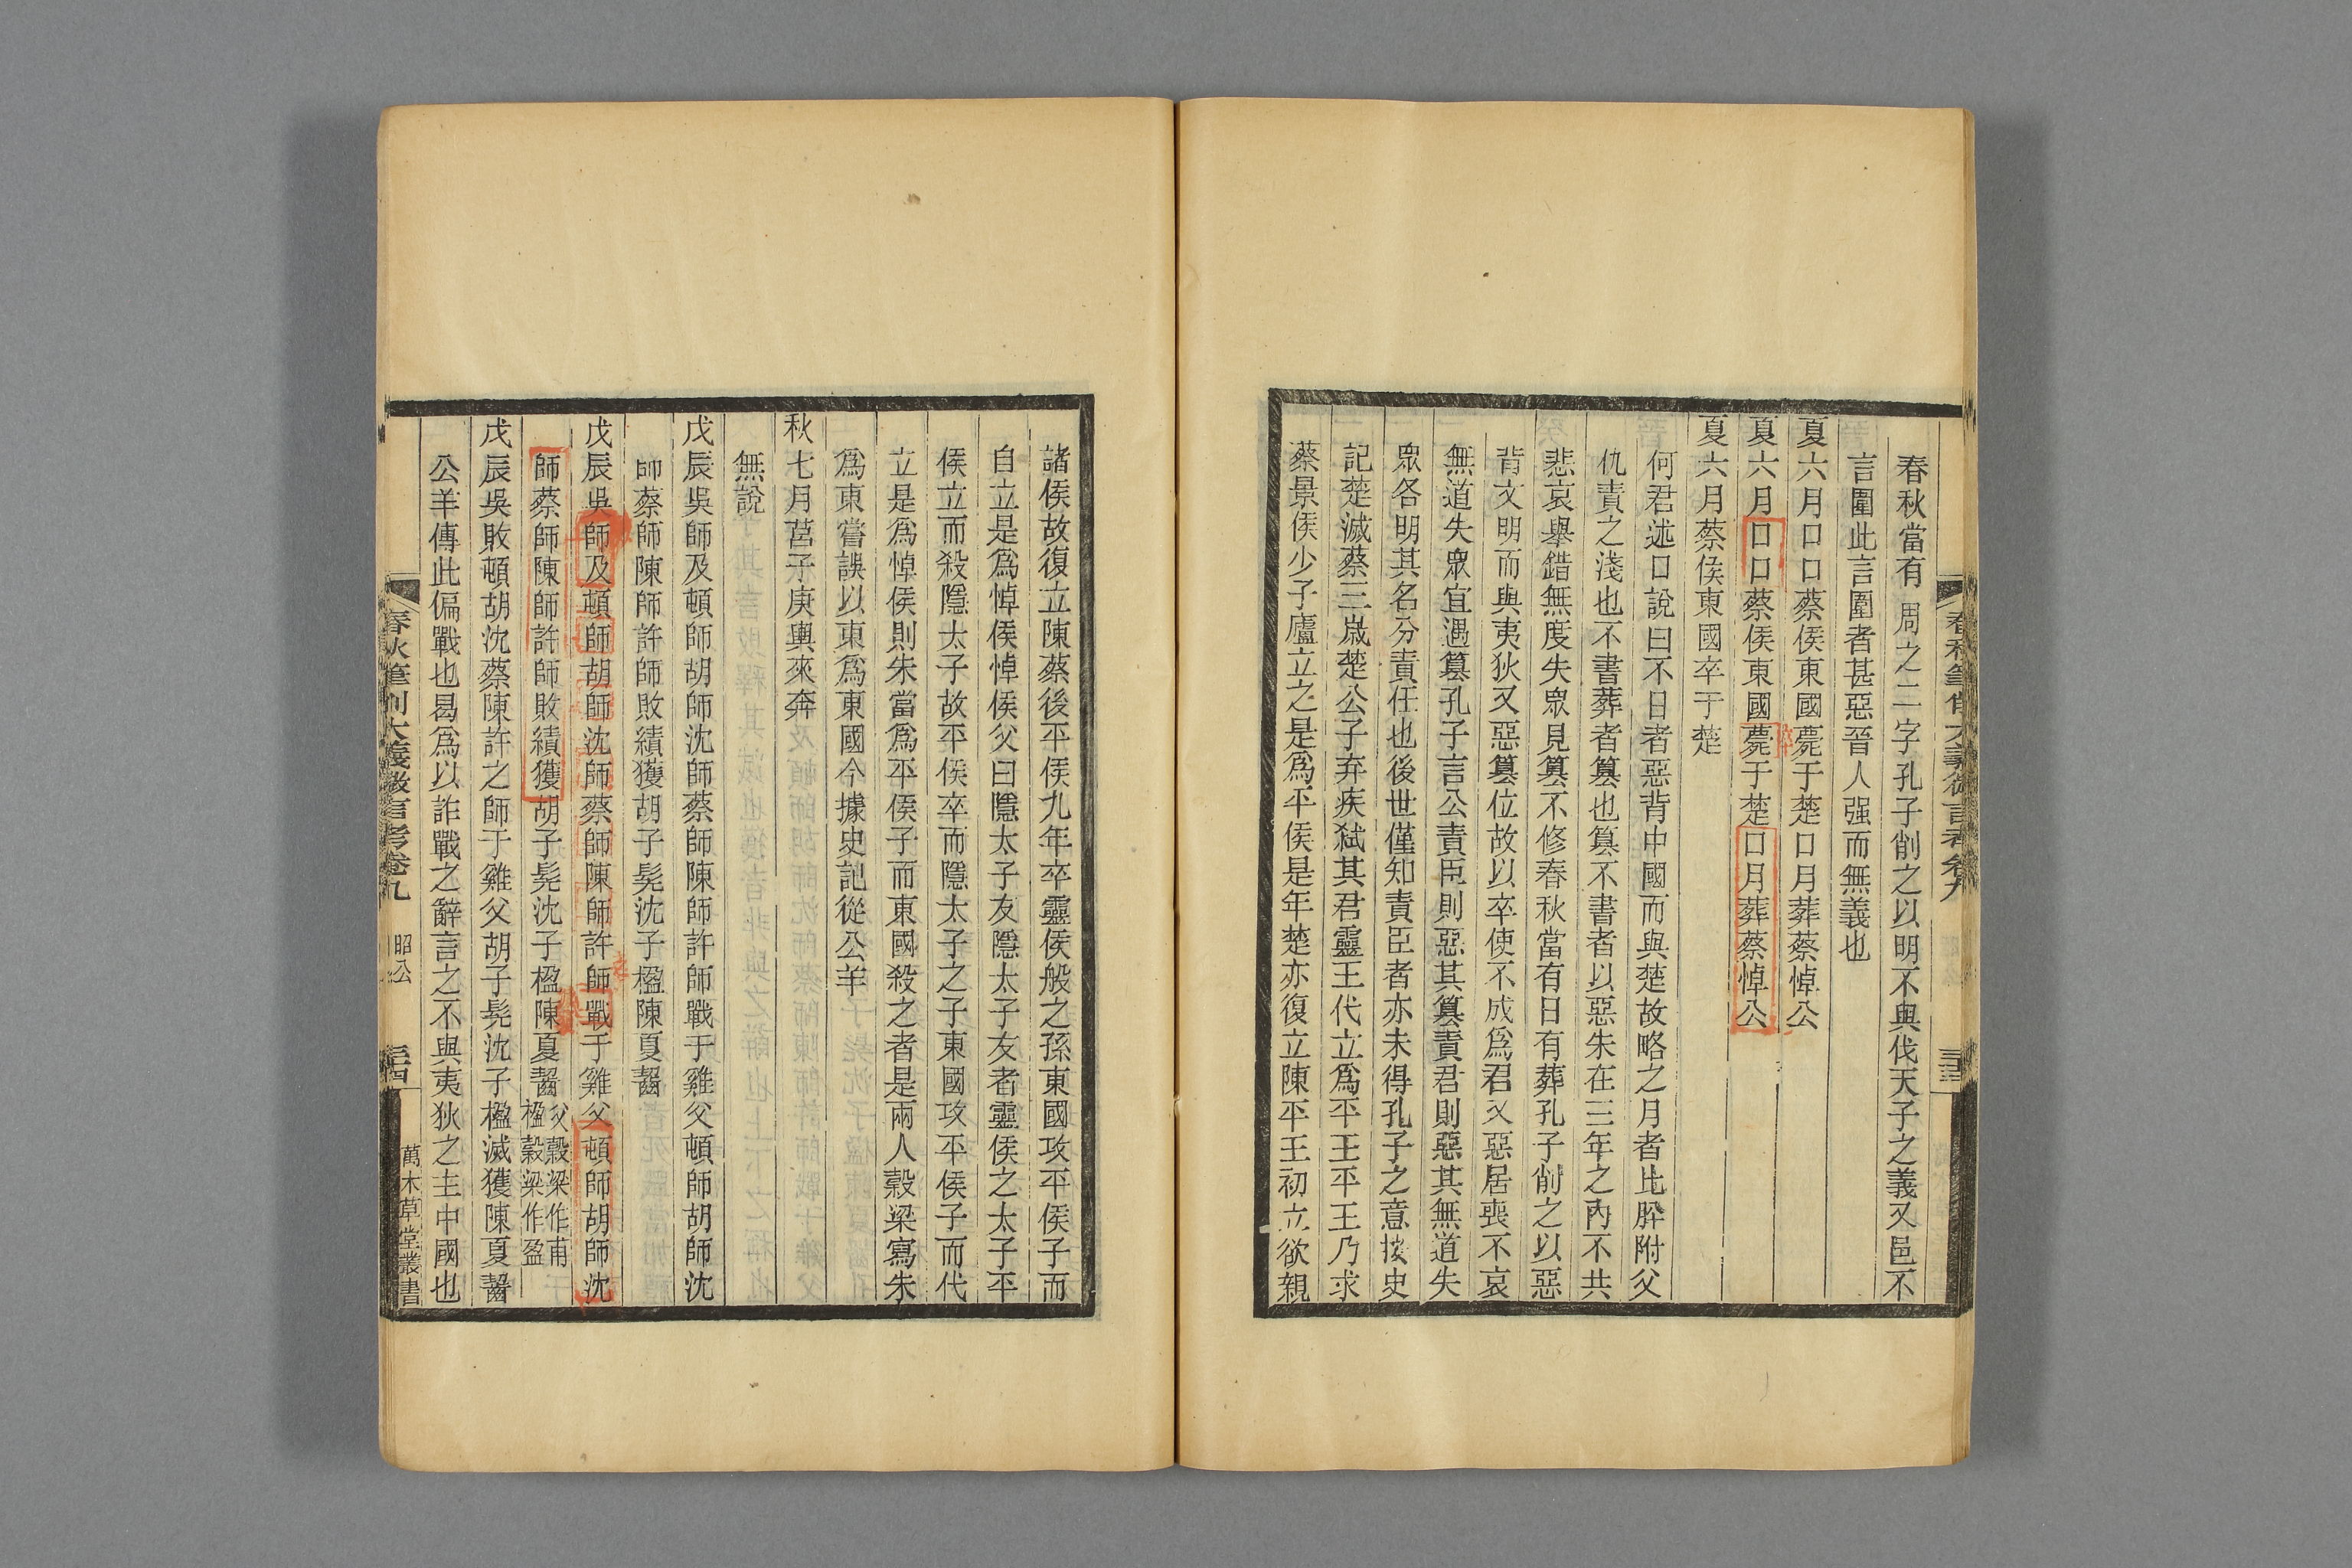 春秋筆削大義微言考卷九
三十三
春秋當有周之二字孔子削之以明不與伐天子之義又邑不
言圍此言圍者甚惡晉人强而無義也
夏六月口口蔡侯東國薨于楚口月葬蔡悼公
夏六月口口蔡侯東國薨于楚口月葬蔡悼公
夏六月蔡侯東國卒于楚
何君述口說曰不日者惡背中國而與楚故略之月者比肸附父
仇責之淺也不書葬者篡也篡不書者以惡朱在三年之內不共
悲哀舉錯無度失眾見篡不修春秋當有日有葬孔子削之以惡
背文明而與夷狄又惡篡位故以卒使不成爲君又惡居喪不哀
無道失眾宜遇篡孔子言公責臣則惡其篡責君則惡其無道失
眾各明其名分責任也後世僅知責臣者亦未得孔子之意按史
記楚滅蔡三歲楚公子弃疾弑其君靈王代立爲平王平王乃求
蔡景侯少子廬立之是爲平侯是年楚亦復立陳平王初立欲親
諸侯故復立陳蔡後平侯九年卒靈侯般之孫東國攻平侯子而
自立是爲悼侯悼侯父曰隱太子友隱太子友者靈侯之太子平
侯立而殺隱太子故平侯卒而隱太子之子東國攻平侯子而代
立是爲悼侯則朱當爲平侯子而東國殺之者是兩人穀梁寫朱
爲東嘗誤以東爲東國今據史記從公羊
秋七月莒子庚輿來奔
無說
戊辰吳師及頓師胡師沈師蔡師陳師許師戰于雞父頓師胡師沈
師蔡師陳師許師敗績獲胡子髡沈子楹陳夏齧
戊辰吳師及頓師胡師沈師蔡師陳師許師戰于雞父頓師胡師沈
師蔡師陳師許師敗績獲胡子髡沈子楹陳夏齧父穀梁作甫
楹穀梁作盈
戊辰吳敗頓胡沈蔡陳許之師于雞父胡子髡沈子楹滅獲陳夏齧
公羊傳此偏戰也曷爲以詐戰之辭言之不與夷狄之主中國也
春秋筆削大義微言考卷九
昭公
三十四
萬木草堂叢書